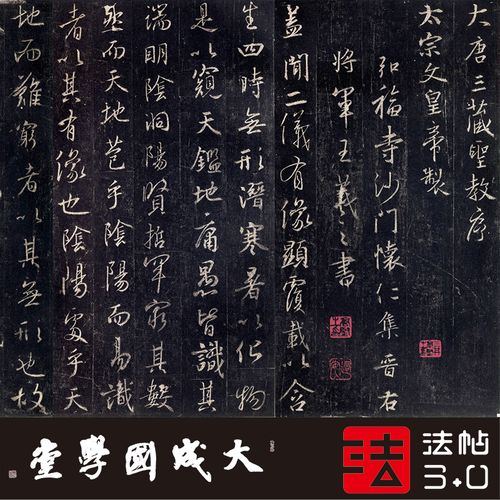 大唐三藏聖教序
太宗文皇帝製
弘福寺沙門懷仁集晉右
將軍王羲之書
蓋聞二儀有像顯覆載以含
生四時無形潛寒暑以化物
是以窺天鑑地庸愚皆識其
端明陰洞陽賢哲罕窮其數
然而天地苞乎陰陽而易識
者以其有像也陰陽處乎天
地而難窮者以其無形也故
大成國學堂
法
法帖
3.0